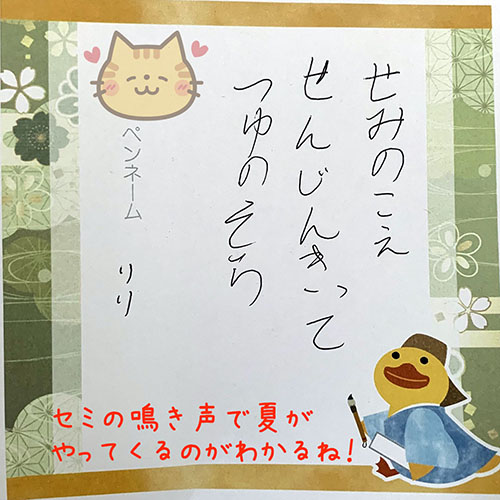 せみのこえ
せんじんきって
つゆのそら
ペンネーム
りり
セミの鳴き声で夏が
やってくるのがわかるね!